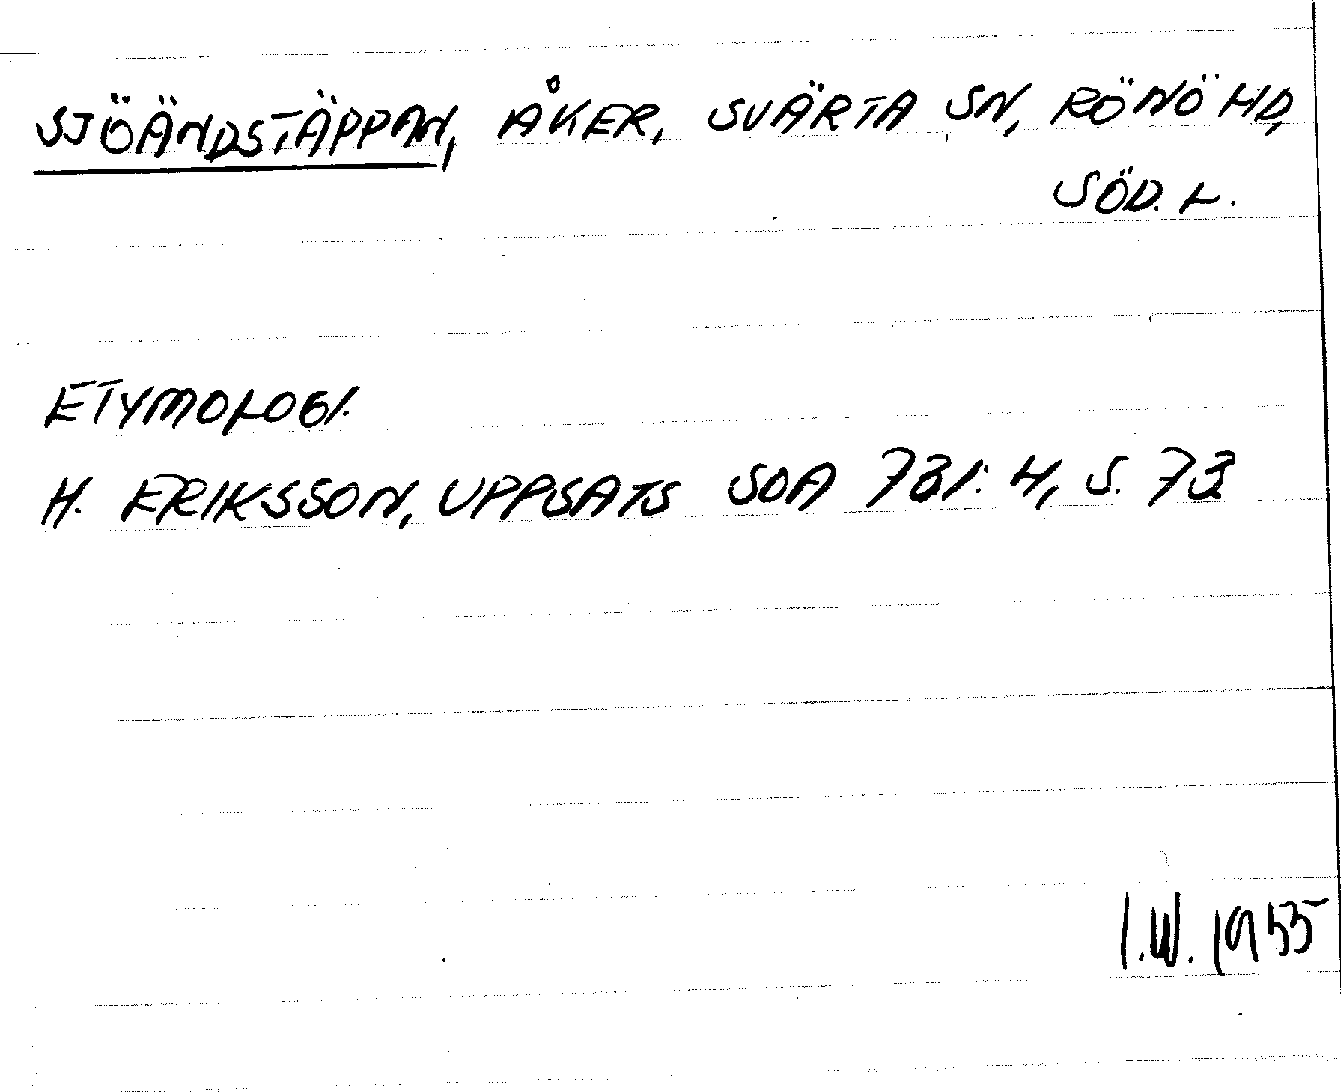 SJÖÄNDSTÄPPAN, ÅKER, SVÄRTA SN, RÖNÖ HD,
SÖD. L.
ETYMOLOGI.
H. ERIKSSON, UPPSATS SOA 731:4, S. 73
I.W. 1955